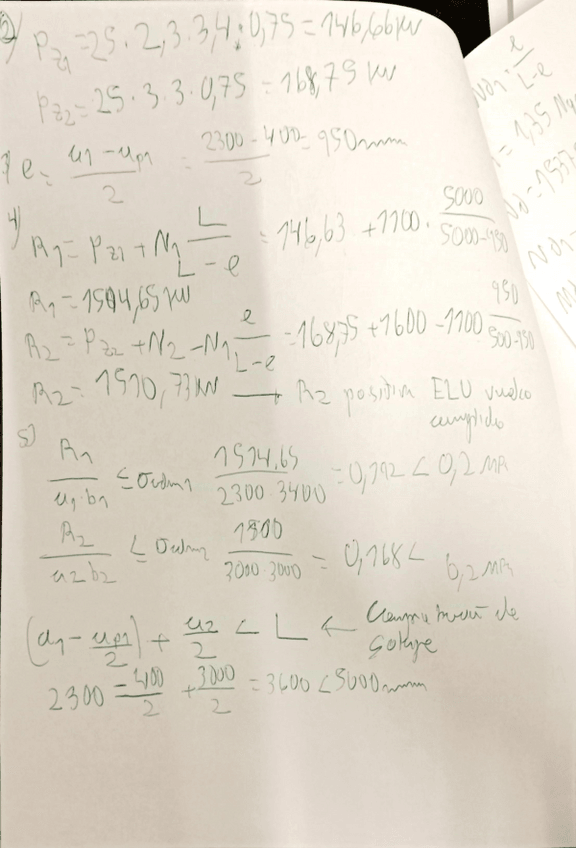 2) Pz1 = 25 · 2,3 · 3,4 · 0,75 = 146,66 kN
Pz2 = 25 · 3 · 3 · 0,75 = 168,75 kN
e = (a1 - ap1)/2 = (2300 - 400)/2 = 950 mm
4)
R1 = Pz1 + N1 L/(L - e) = 146,63 + 1100 · 5000/(5000-950)
R1 = 1504,65 kN
R2 = Pz2 + N2 - N1 e/(L-e) = 168,75 + 1600 - 1100 950/(500-950)
R2 = 1510,73 kN → R2 positiva ELU vuelco
cumplido
5)
R1/(a1·b1) ≤ σadm1 1514,65/(2300·3400) = 0,192 < 0,2 MPa
R2/(a2b2) ≤ σadm2 1800/(3000·3000) = 0,168 < 0,2 MPa
(a1 - ap1/2) + a2/2 < L ← de
solape
2300 = 400/2 + 3000/2 = 3600 < 5000 mm
e
N01 · L-e
= 1,35 N